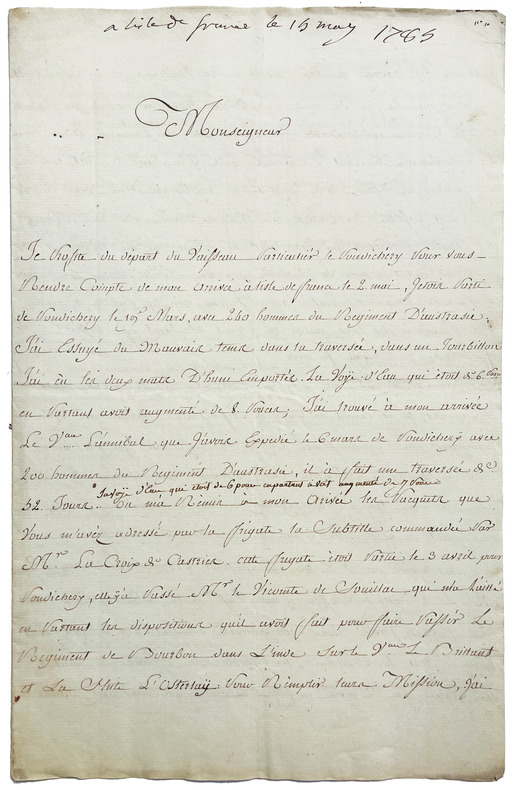 a lisle de france le 15 may 1785
Monseigneur
Je Profite du départ du Vaisseau Particulier le Pondichery Pour vous
Rendre Compte de mon arrivée à lisle de france le 2. mai, Jetois Parti
de Pondichery le 19 Mars, avec 240 hommes du Regiment D'austrasie.
J'ai Essuyé du Mauvais tems dans la traversée, dans un Tourbillon
J'ai eu les deux mats D'huni Emportés. La Voye d'Eau qui étoit de 6. Pouces
en Partant avoit augmenté de 8. Pouces; J'ai trouvé à mon arrivée
Le Vau L'annibal que J'avois Expedié le 6 mars de Pondichery avec
200 hommes du Regiment D'austrasie, il a fait une traversée de
la voye d'Eau qui étoit de 6 pouces en partant avoit augmenté de 7 pouces
52. Jours. On m'a Remis à mon Arivée les Paquets que
Vous m'avés adressé par la frégate la Subtille commandée Par
Mr. La Croix de Castries. cette frégate étoit Partie le 3 avril pour
Pondichery, elle y a Passé Mr. le Vicomte de Souillac qui m'a laissé
en Partant les dispositions qu'il avoit fait pour faire Passér Le
Regiment de Bourbon dans L'inde sur le Vau L Brilant
et La flute L'Osterlay. Pour Remplir leurs Mission, J'ai